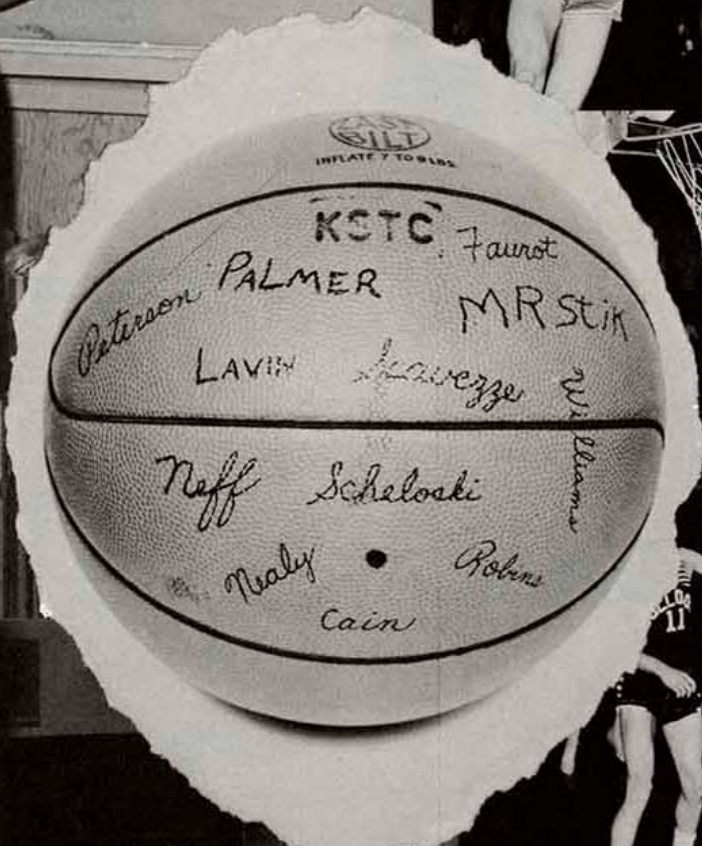 BILT
INFLATE 7 TO 9 LBS.
KSTC
Faurot
PALMER
Peterson
MRStiK
LAVIN
Scavezze
Williams
Neff
Scheloski
Nealy
Robins
Cain
11